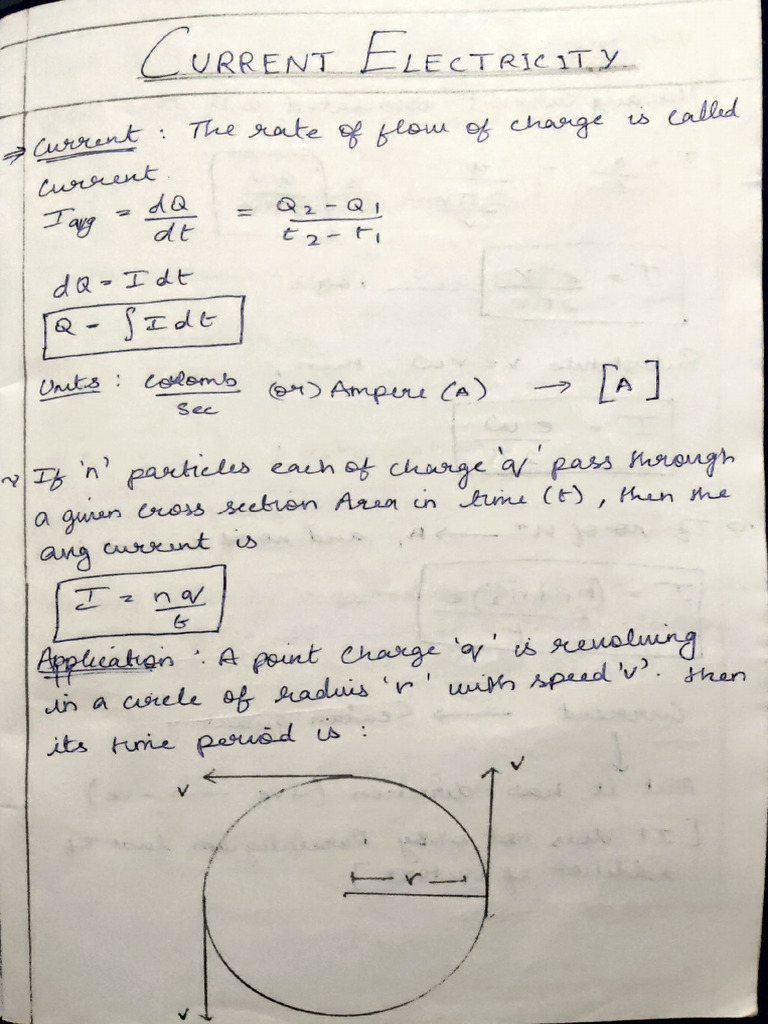 CURRENT ELECTRICITY
⇒ Current : The rate of flow of charge is called
current.
I avg = dQ/dt = Q2 - Q1 / t2 - t1
dQ = I dt
Q = ∫ I dt
Units : Coulomb/Sec (or) Ampere (A) → [A]
If 'n' particles each of charge 'q' pass through
a given cross section Area in time (t), then the
avg current is
I = nq/t
Application : A point charge 'q' is revolving
in a circle of radius 'r' with speed 'v'. Then
its time period is :
v v
r
v